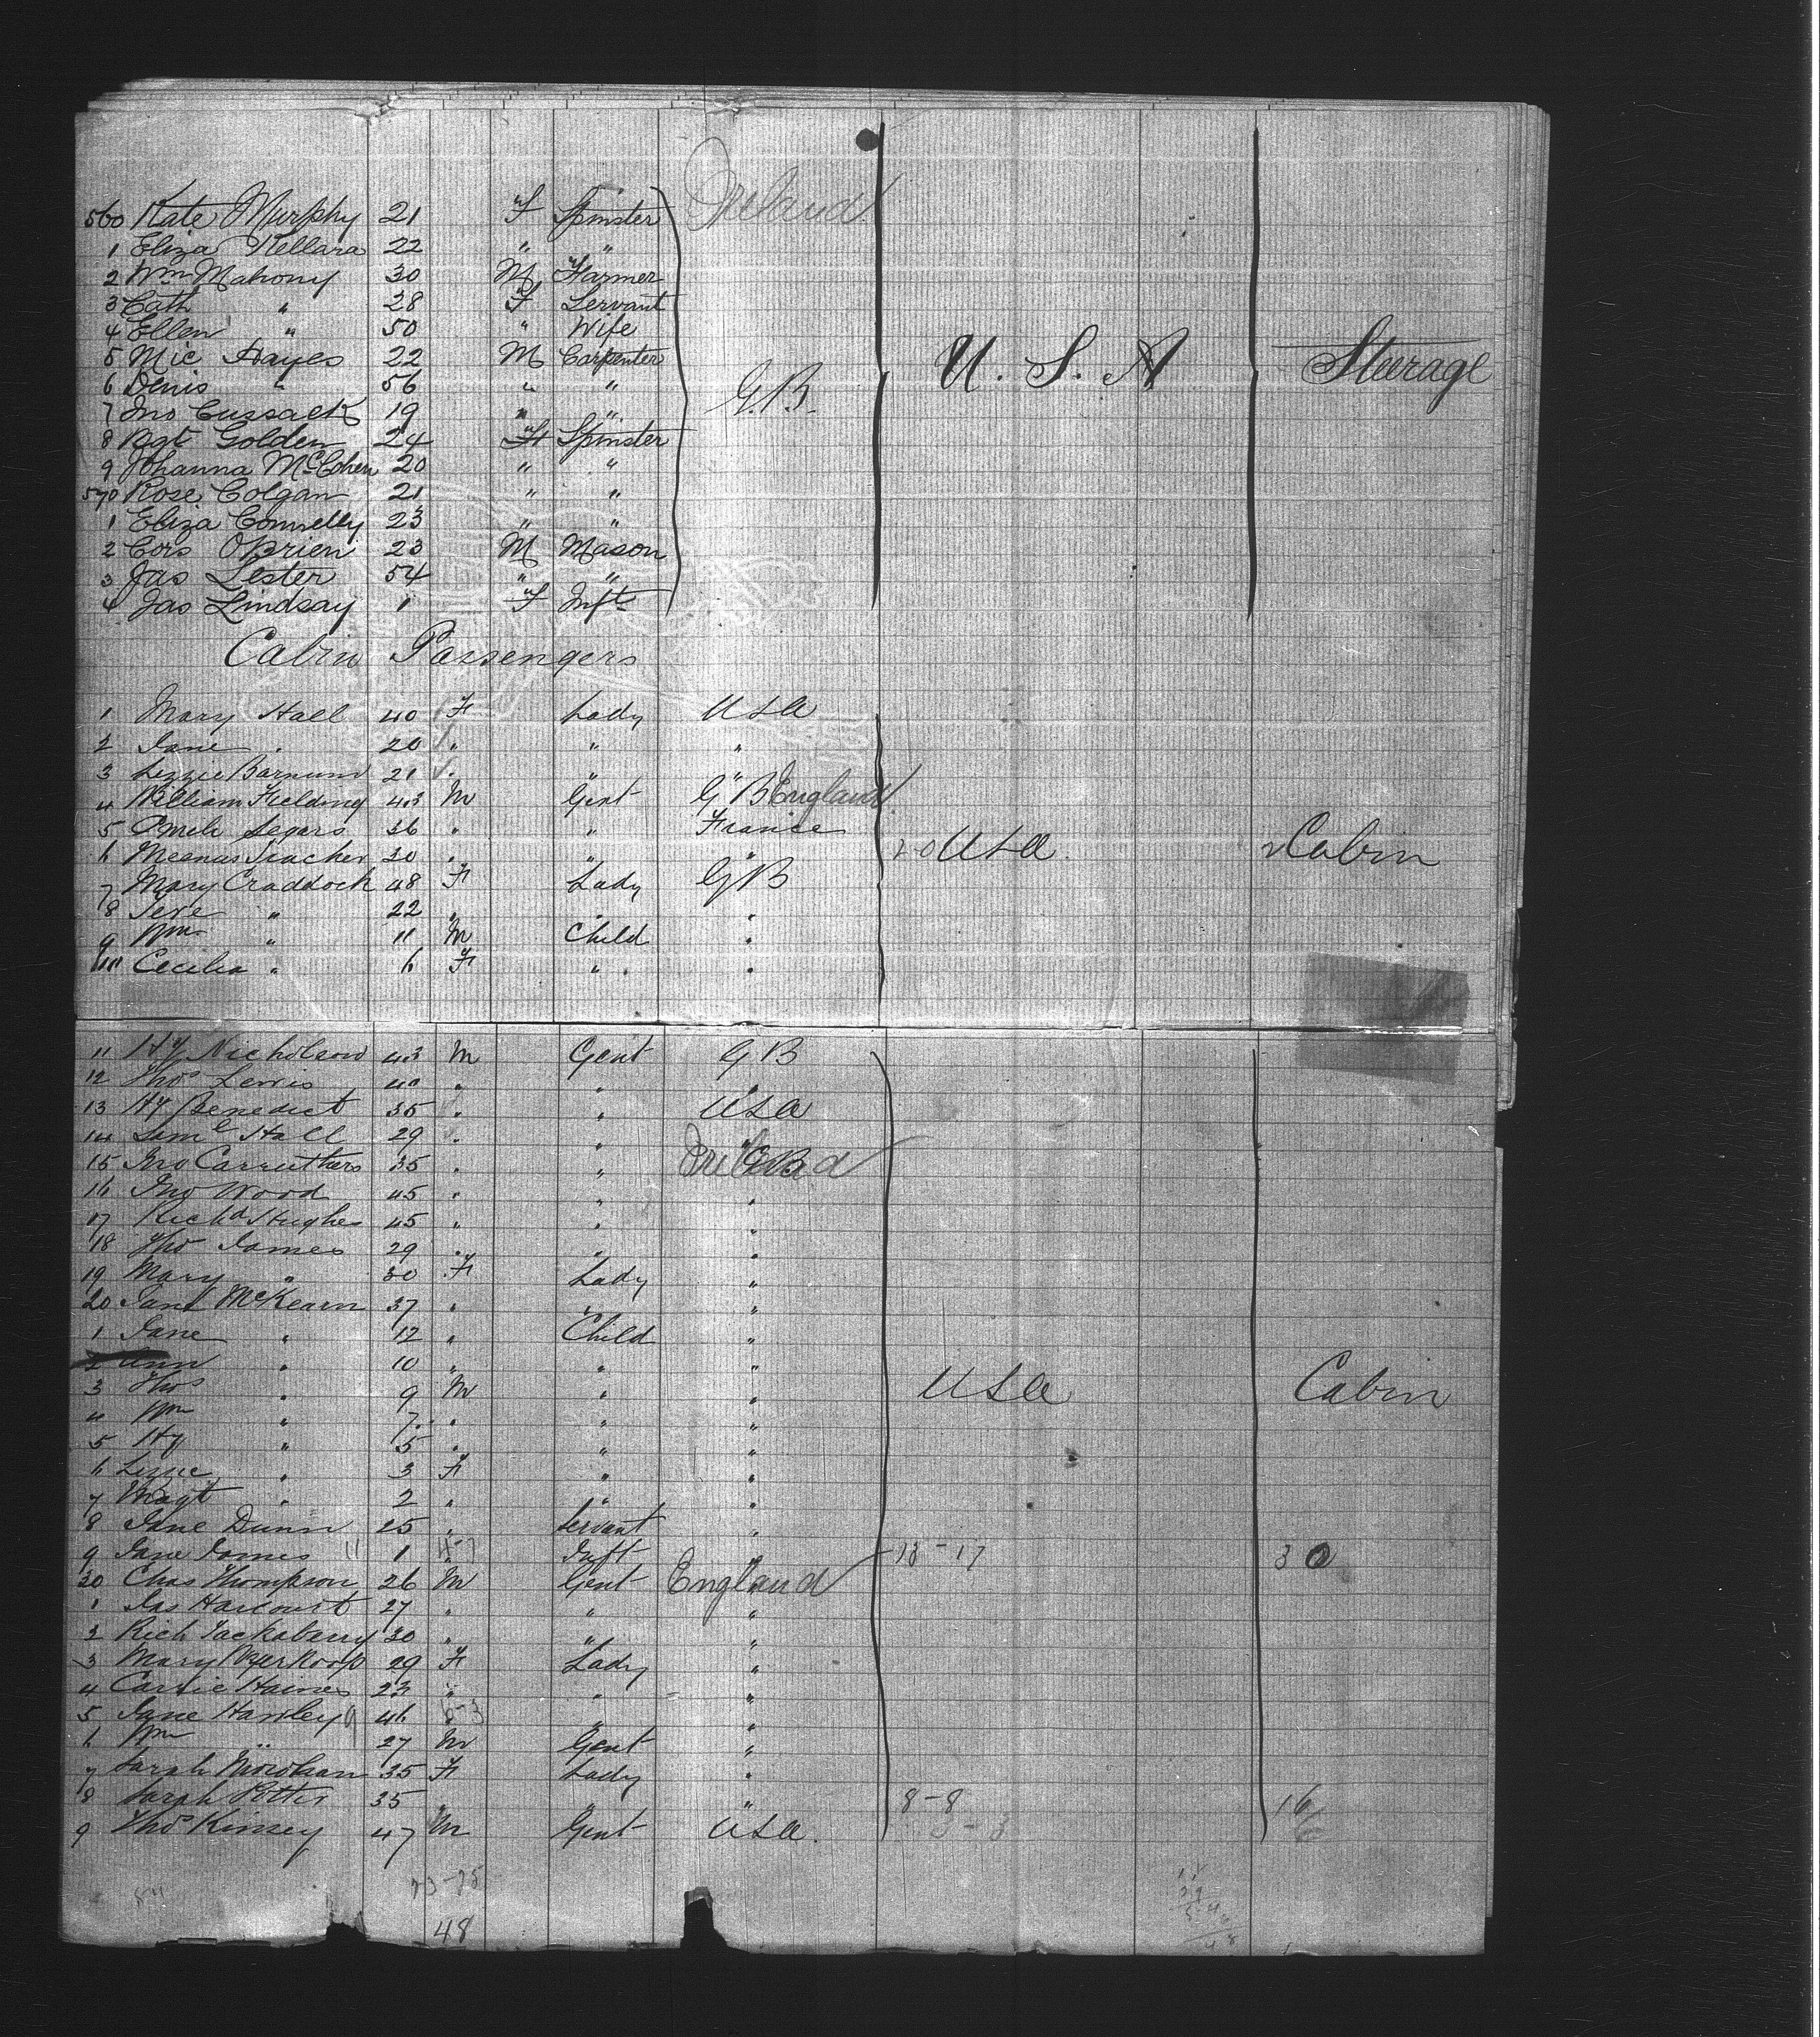 560 Kate Murphy 21 F Spinster Ireland
1 Eliza Kellara 22 " "
2 Wm Mahony 30 M Farmer
3 Cath " 28 F Servant
4 Ellen " 50 " Wife
5 Mic Hayes 22 M Carpenter U.S.A Steerage
6 Denis " 56 " " G.B.
7 Jno Cussack 19 " "
8 Bgt Golden 24 F Spinster
9 Johanna McCohen 20 " "
570 Rose Colgan 21 " "
1 Eliza Connelly 23 " "
2 Cors OBrien 23 M Mason
3 Jas Lester 54 " "
4 Jas Lindsay 1 F Inft
Cabin Passengers
1 Mary Hall 40 F Lady USA
2 Jane " 20 " " "
3 Lizzie Barnum 21 " " "
4 William Fielding 43 M Gent G B England
5 Segers 36 " " France
6 30 " " " 20 USA Cabin
7 Mary Craddock 48 F Lady GB
8 22 " " "
9 Wm " 11 M Child "
10 Cecilia " 6 F " "
11 Hy Nicholson 43 M Gent GB
12 Thos Lewis 40 " " "
13 Hy Benedict 35 " " USA
14 Saml Hall 29 " " "
15 Jno Carruthers 35 " " GB Ireland
16 Jno Wood 45 " " "
17 Richd Hughes 45 " " "
18 Tho James 29 " " "
19 Mary " 30 F Lady "
20 McKearn 37 " " "
1 Jane " 12 " Child "
2 Ann " 10 " " "
3 Thos " 9 M " " USA Cabin
4 Wm " 7 " " "
5 Hy " 5 " " "
6 " 3 F " "
7 Magt " 2 " " "
8 Jane Dunn 25 " Servant "
9 Jane James 11 1 4-7 Inft " 13-17 30
30 Chas Thompson 26 M Gent England
1 Jas Harcourt 27 " " "
2 Rich Tackabarry 30 " " "
3 Mary 29 F Lady "
4 Carrie Haines 23 " " "
5 Jane Hanley 9 46 6-3 " "
6 Wm " 27 M Gent "
7 Sarah 35 F Lady "
8 Sarah Potter 35 " " " 8-8 16
9 Thos Kinsey 47 M Gent USA 3-3 6
48